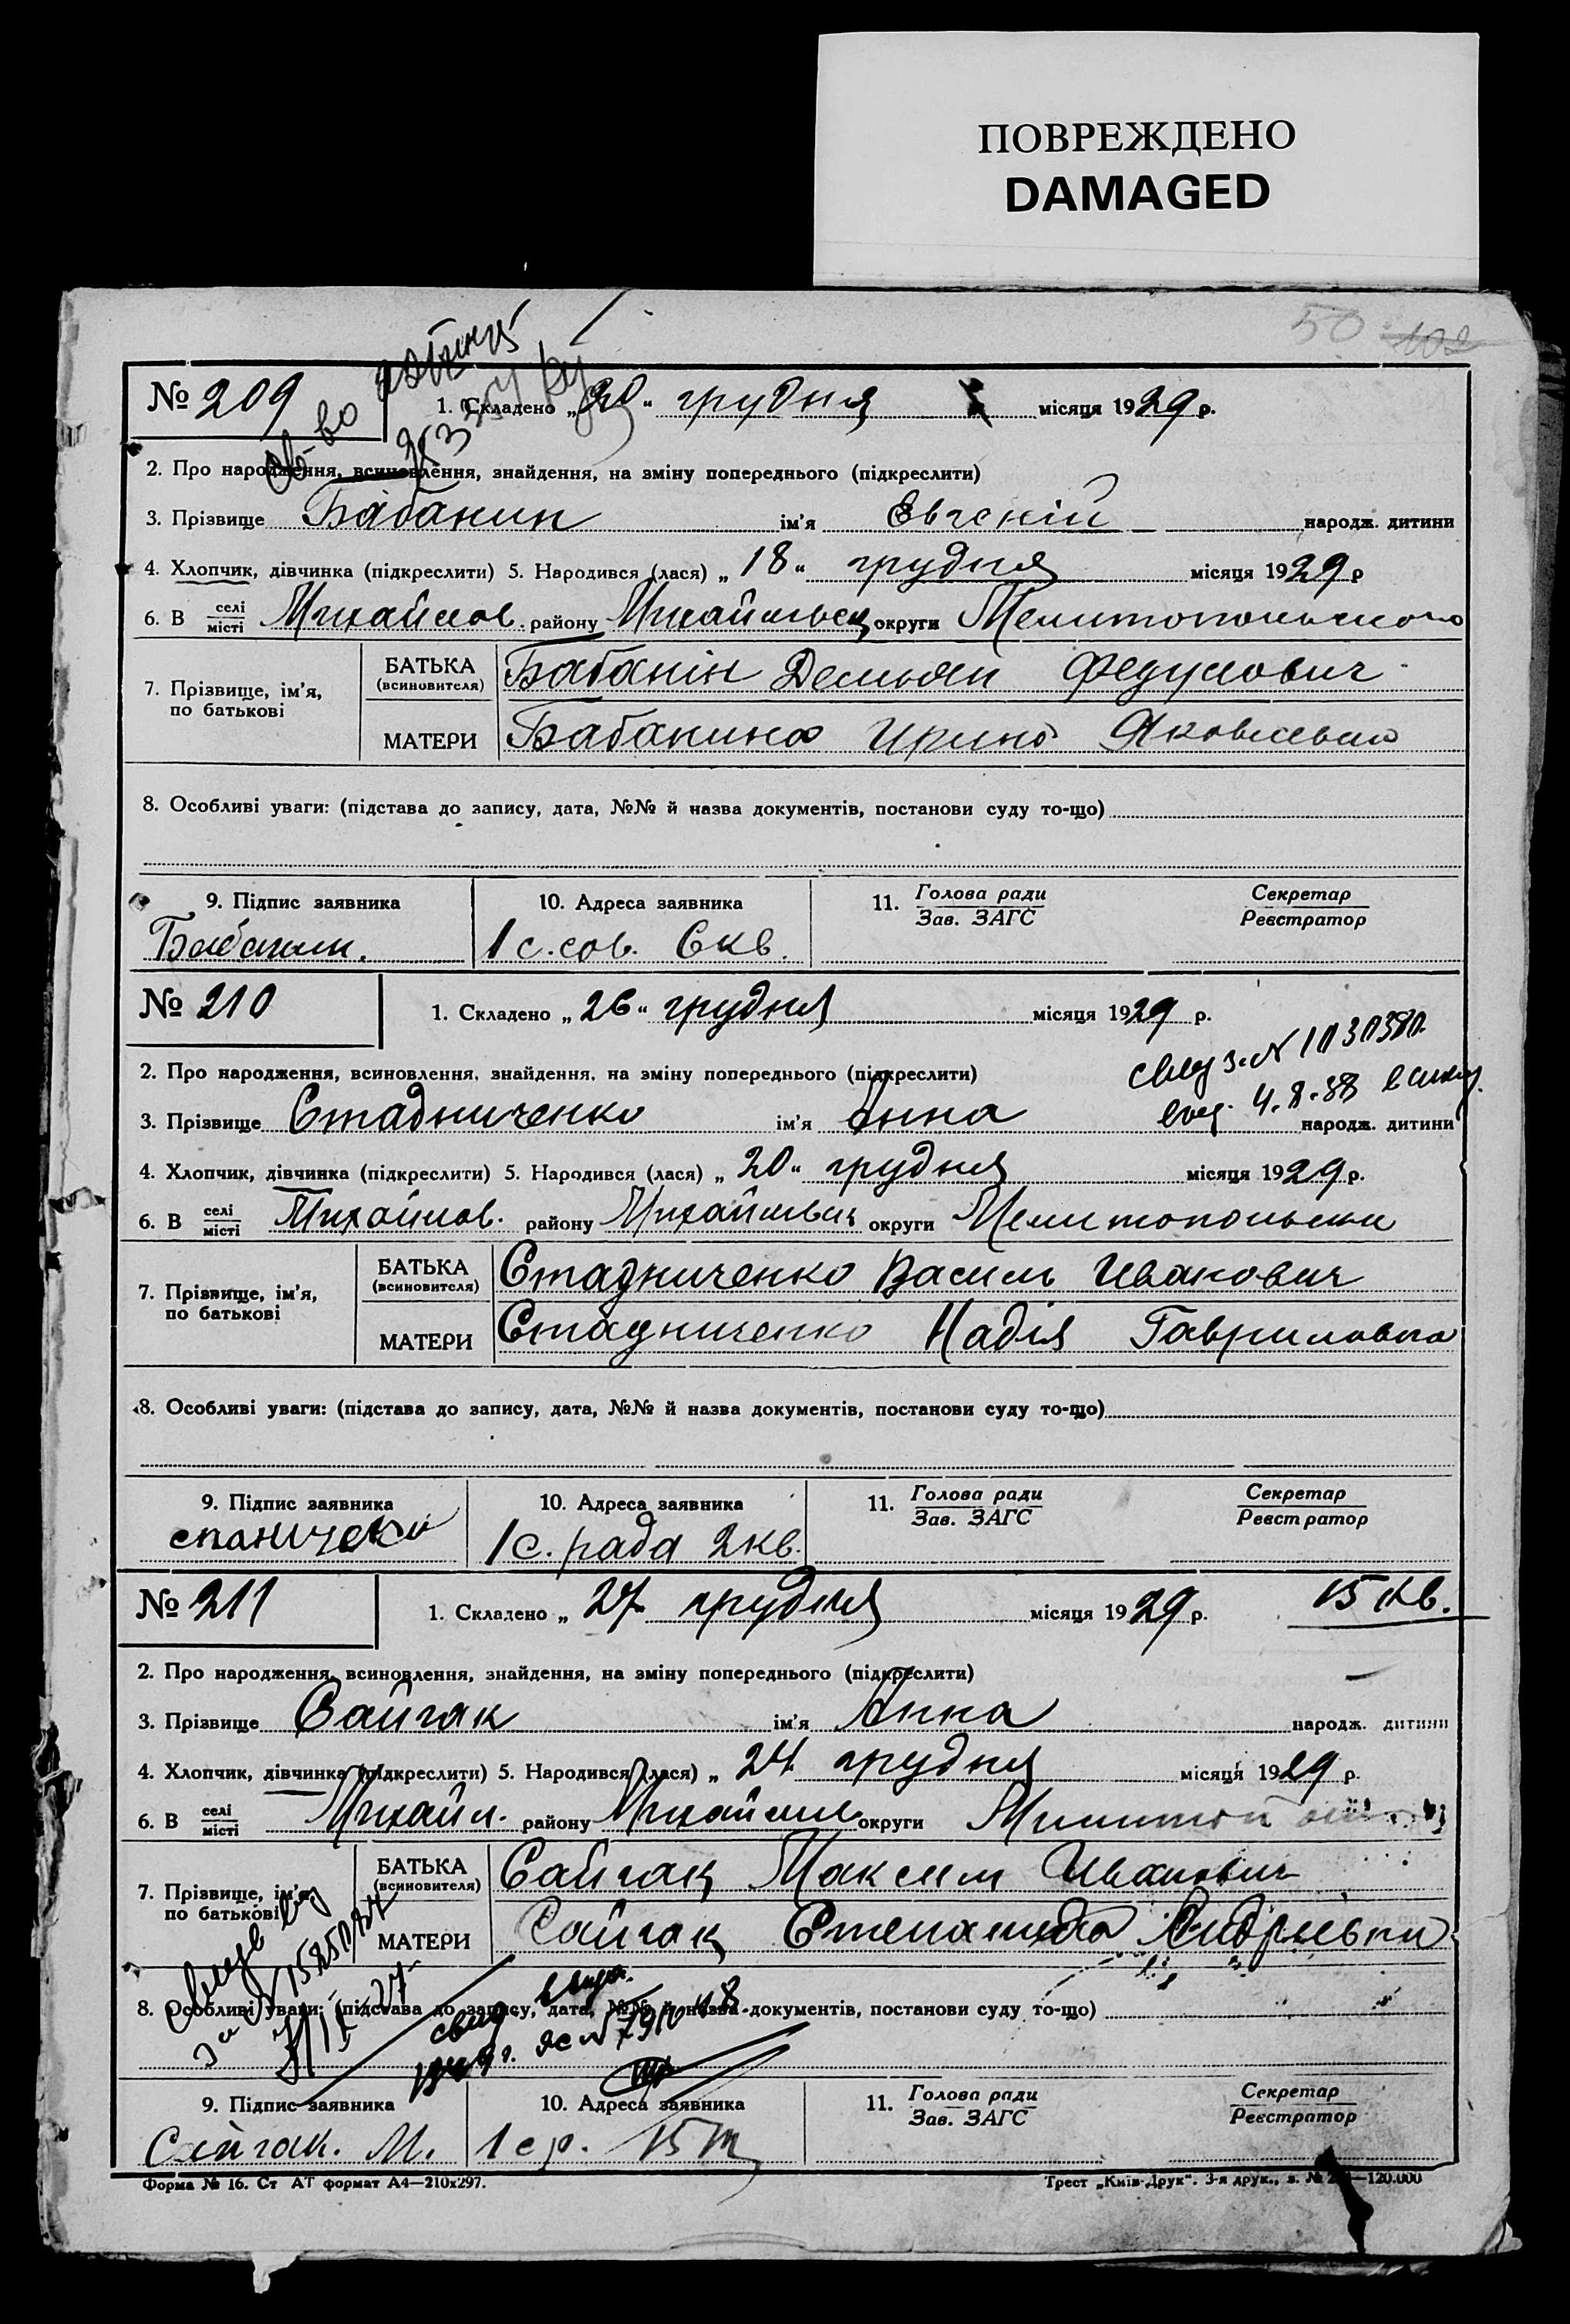 ПОВРЕЖДЕНО
DAMAGED
50 102
№ 209
1. Складено „20“ грудня місяця 1929 р.
2. Про народження, всиновлення, знайдення, на зміну попереднього (підкреслити)
3. Прізвище Бабанин ім’я Євгеній народж. дитини
4. Хлопчик, дівчинка (підкреслити) 5. Народився (лася) „18“ грудня місяця 1929 р
6. В селі/місті Михайлов. району Михайлівськ округи Мелитопольского
7. Прізвище, ім’я, по батькові
БАТЬКА (всиновителя) Бабанін Демьян Федулович
МАТЕРИ Бабанина Ирина Яковлевна
8. Особливі уваги: (підстава до запису, дата, №№ й назва документів, постанови суду то-що)
9. Підпис заявника 10. Адреса заявника 11. Голова ради/Зав. ЗАГС Секретар/Реєстратор
Бабанин. 1 с. сов. 6 кв.
№ 210
1. Складено „26“ грудня місяця 1929 р.
2. Про народження, всиновлення, знайдення, на зміну попереднього (підкреслити)
3. Прізвище Стадниченко ім’я Анна народж. дитини
4. Хлопчик, дівчинка (підкреслити) 5. Народився (лася) „20“ грудня місяця 1929 р.
6. В селі/місті Михайлов. району Михайлівськ округи Мелитопольски
7. Прізвище, ім’я, по батькові
БАТЬКА (всиновителя) Стадниченко Василь Иванович
МАТЕРИ Стадниченко Надія Гавриловна
8. Особливі уваги: (підстава до запису, дата, №№ й назва документів, постанови суду то-що)
9. Підпис заявника 10. Адреса заявника 11. Голова ради/Зав. ЗАГС Секретар/Реєстратор
1 с. рада 2 кв.
№ 211
1. Складено „27 грудня місяця 1929 р. 15 кв.
2. Про народження, всиновлення, знайдення, на зміну попереднього (підкреслити)
3. Прізвище Сайгак ім’я Анна народж. дитини
4. Хлопчик, дівчинка (підкреслити) 5. Народився (лася) „24 грудня місяця 1929 р.
6. В селі/місті Михайл. району Михайлів округи
7. Прізвище, ім’я, по батькові
БАТЬКА (всиновителя) Сайгак Максим Иванович
МАТЕРИ Сайгак Степанида Андріевна
8. Особливі уваги: (підстава до запису, дата, №№ й назва документів, постанови суду то-що)
9. Підпис заявника 10. Адреса заявника 11. Голова ради/Зав. ЗАГС Секретар/Реєстратор
Сайгак. М. 1 с р. 15
Форма № 16. Ст АТ формат А4—210х297. Трест „Київ-Друк“. 3-я друк., з. № —120.000